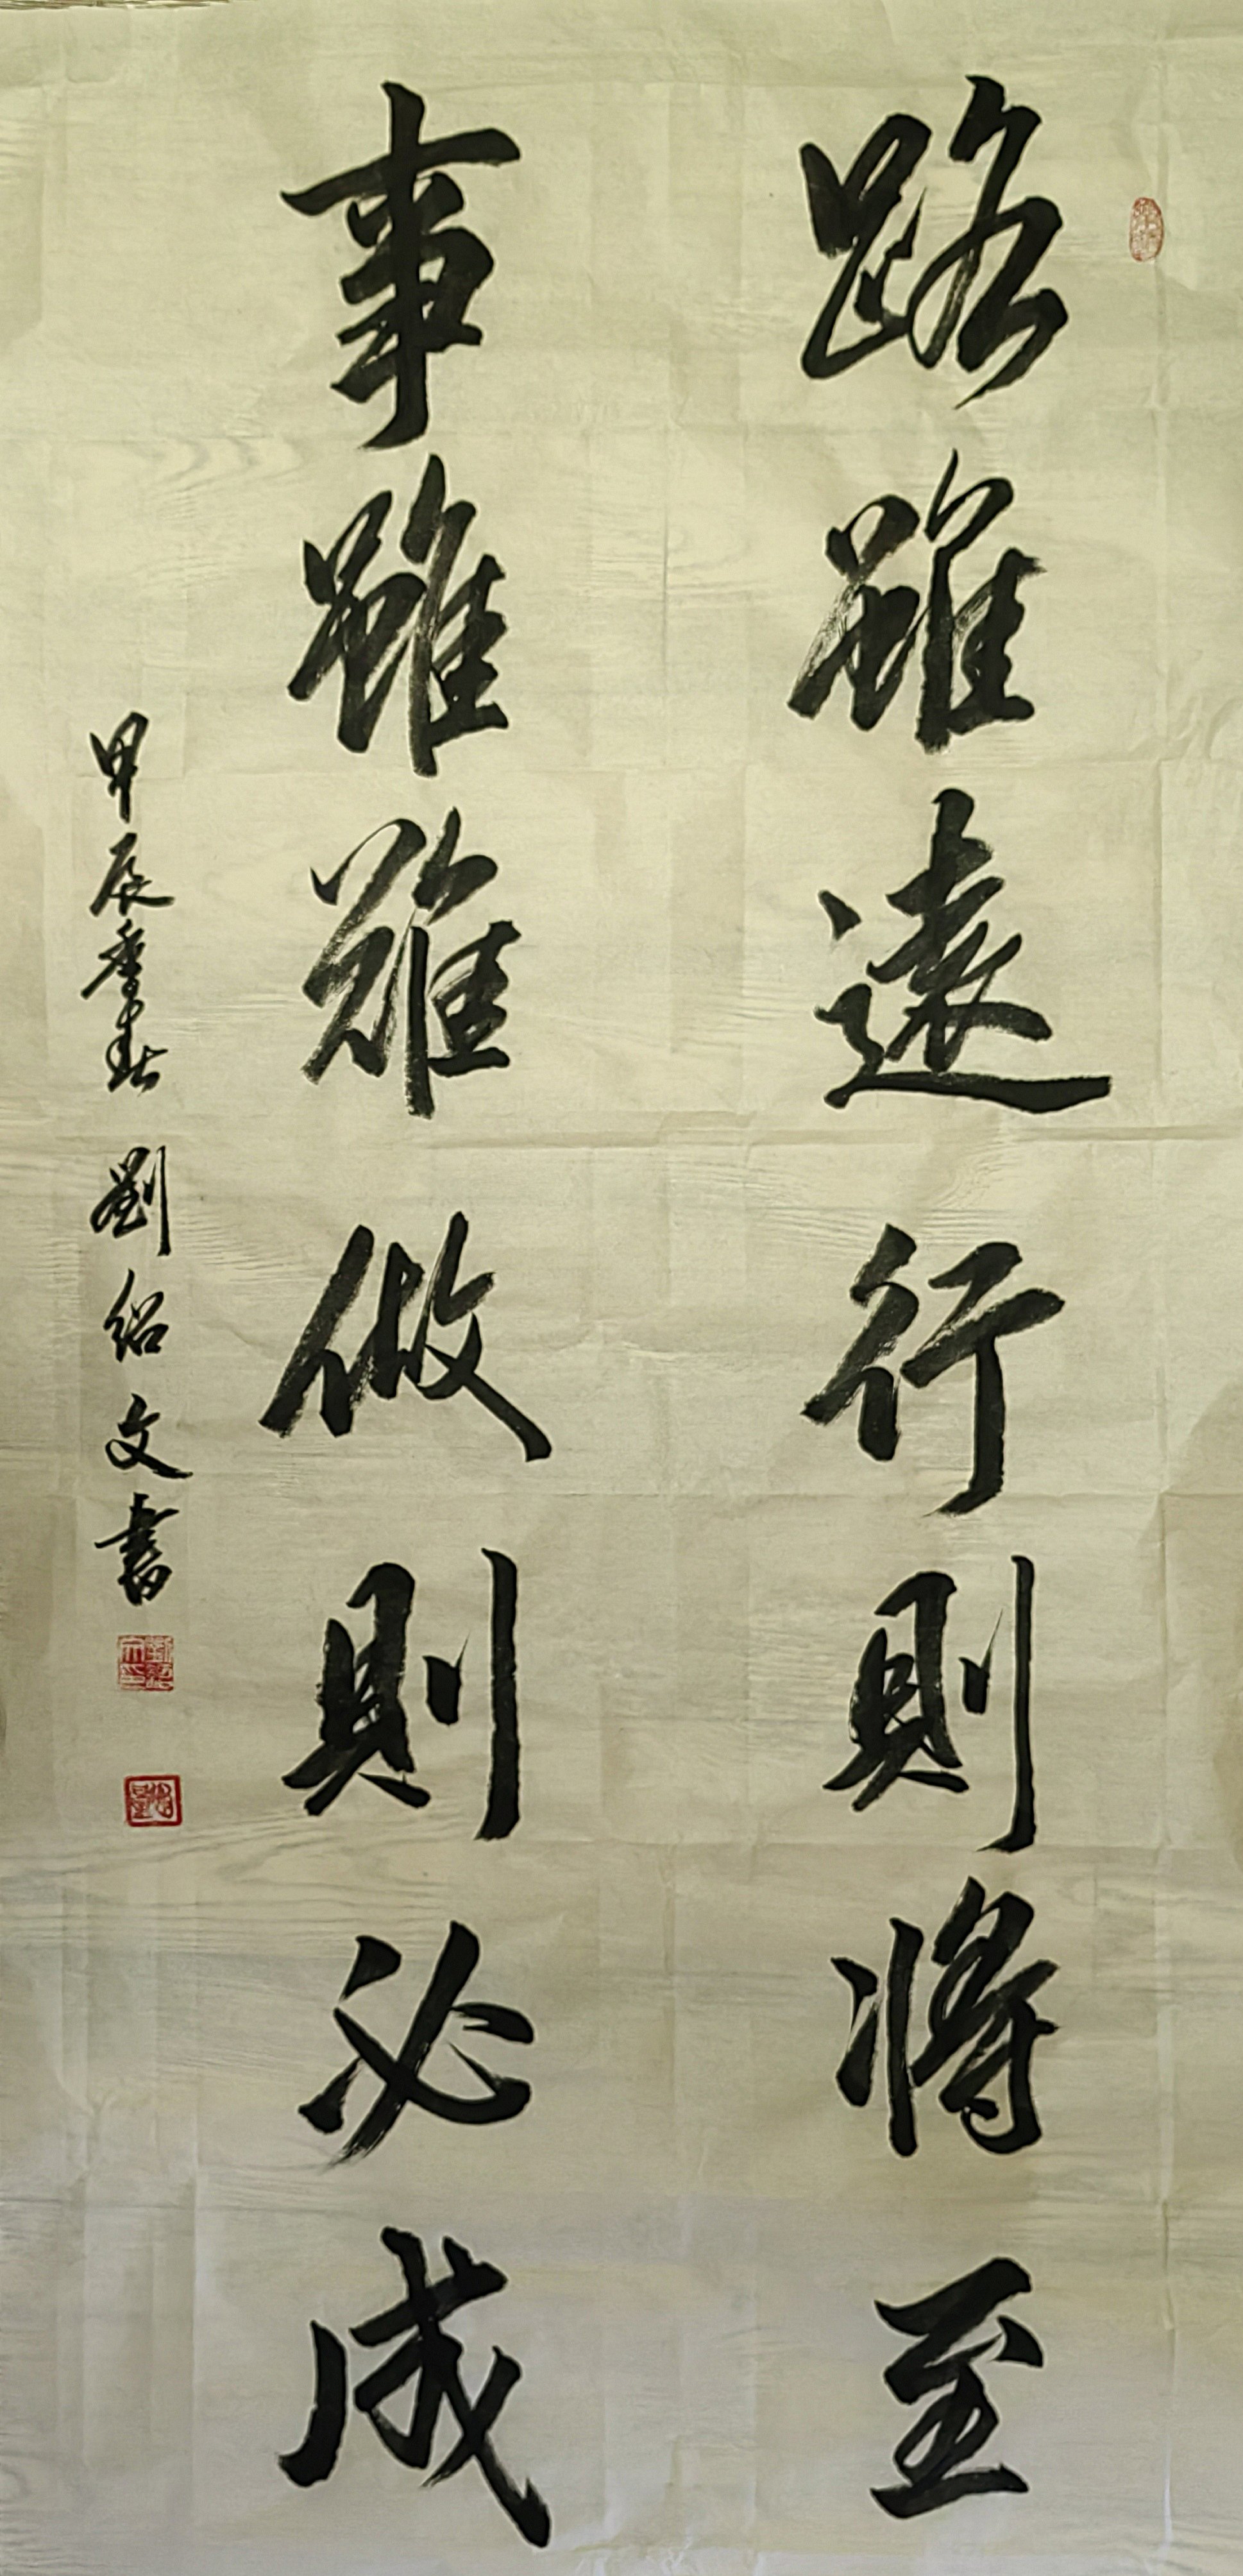 路雖遠行則將至
事雖難做則必成
甲辰季春 劉紹文書